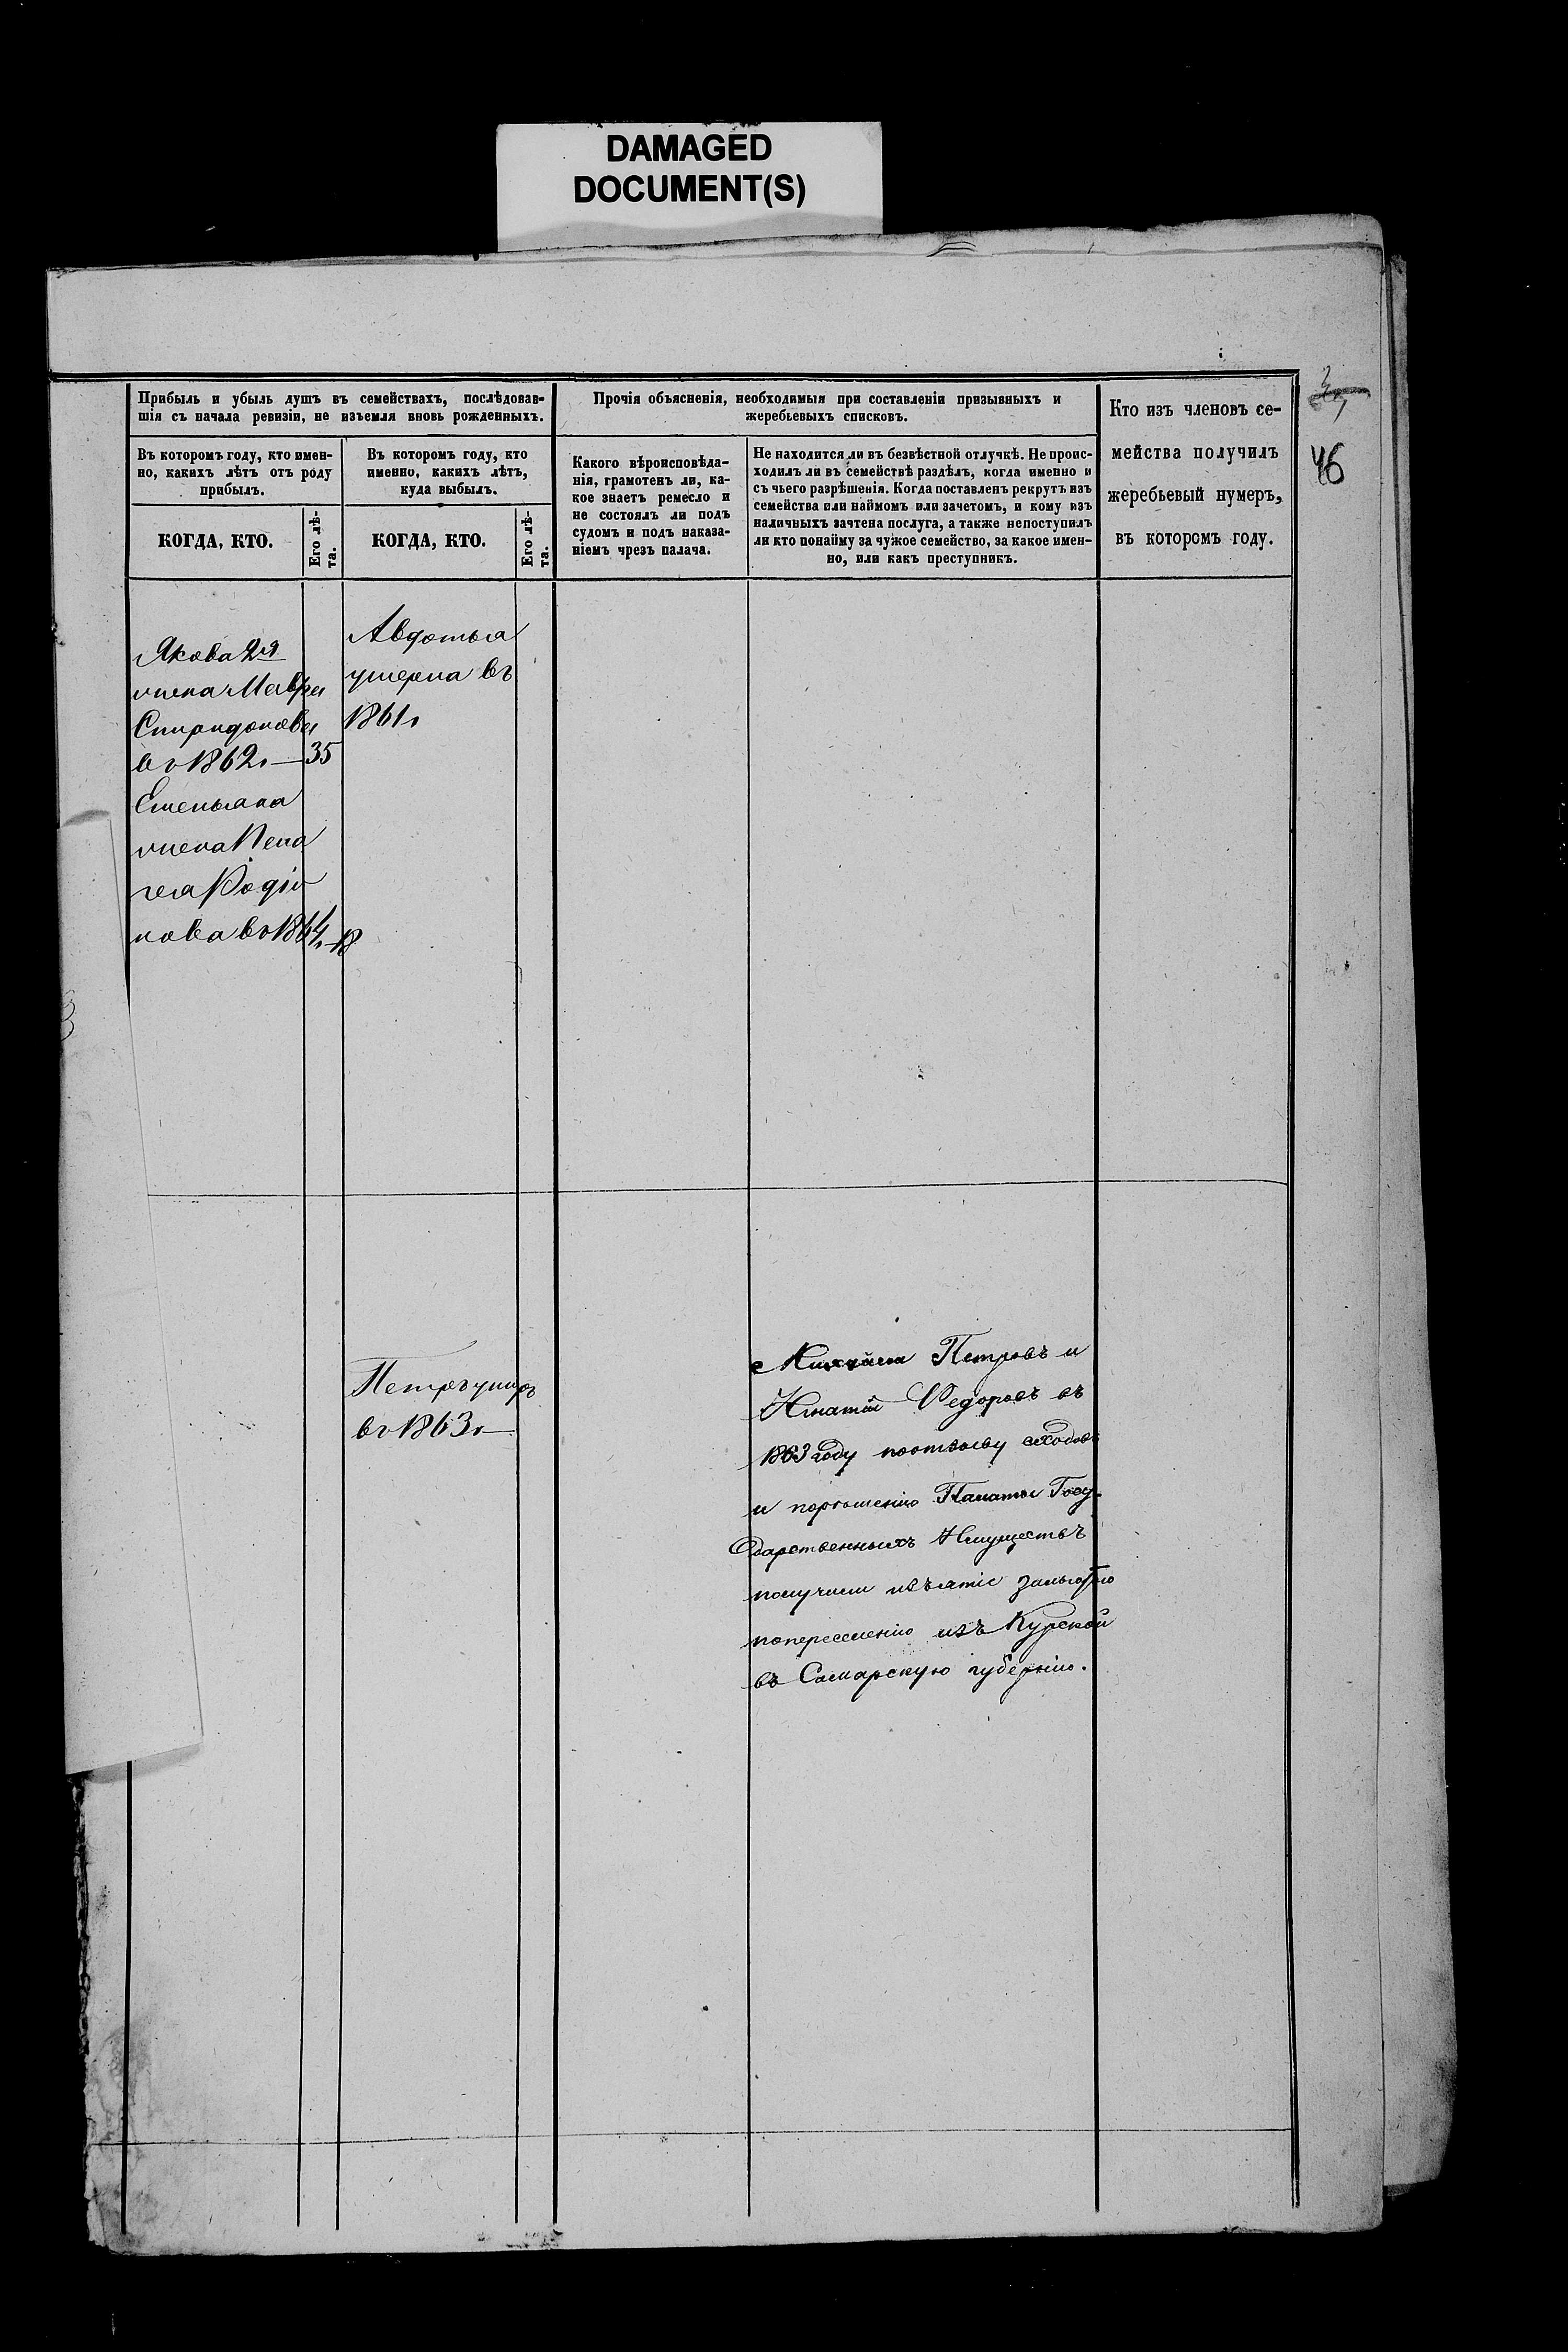 DAMAGED
DOCUMENT(S)
46
Прибыль и убыль душъ въ семействахъ, послѣдовав-
шія съ начала ревизіи, не изъемля вновь рожденныхъ.
Въ которомъ году, кто имен-
но, какихъ лѣтъ отъ роду
прибылъ.
КОГДА, КТО.
Его лѣ-
та.
Въ которомъ году, кто
именно, какихъ лѣтъ,
куда выбылъ.
КОГДА, КТО.
Его лѣ-
та.
Прочія объясненія, необходимыя при составленіи призывныхъ и
жеребьевыхъ списковъ.
Какого вѣроисповѣда-
нія, грамотенъ ли, ка-
кое знаетъ ремесло и
не состоялъ ли подъ
судомъ и подъ наказа-
ніемъ чрезъ палача.
Не находится ли въ безвѣстной отлучкѣ. Не проис-
ходилъ ли въ семействѣ раздѣлъ, когда именно и
съ чьего разрѣшенія. Когда поставленъ рекрутъ изъ
семейства или наймомъ или зачетомъ, и кому изъ
наличныхъ зачтена послуга, а также непоступилъ
ли кто понайму за чужое семейство, за какое имен-
но, или какъ преступникъ.
Кто изъ членовъ се-
мейства получилъ
жеребьевый нумеръ,
въ которомъ году.
Якова 2я
жена Мавра
Спиридонова
въ 1862 г — 35
Емельяна
жена Пела
гея Родіо
нова въ 1864 г. 18
Авдотья
умерла въ
1861 г
Петръ умеръ
въ 1863 г —
Михайла Петровъ и
Игнатій Федоровъ въ
1863 году
и порѣшенію Палаты Госу-
дарственныхъ Имуществъ
получили изъятіе
попереселенію изъ Курской
въ Самарскую губернію.